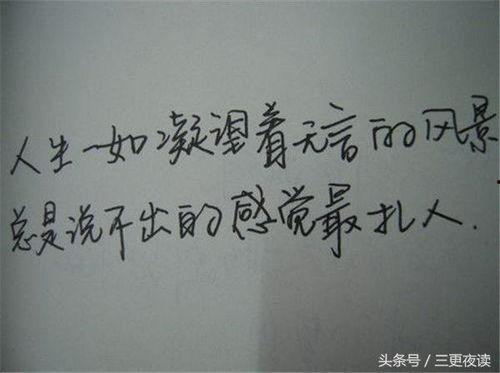 人生一如凝望着无言的风景
总是说不出的感觉最扎人.
头条号/三更夜读